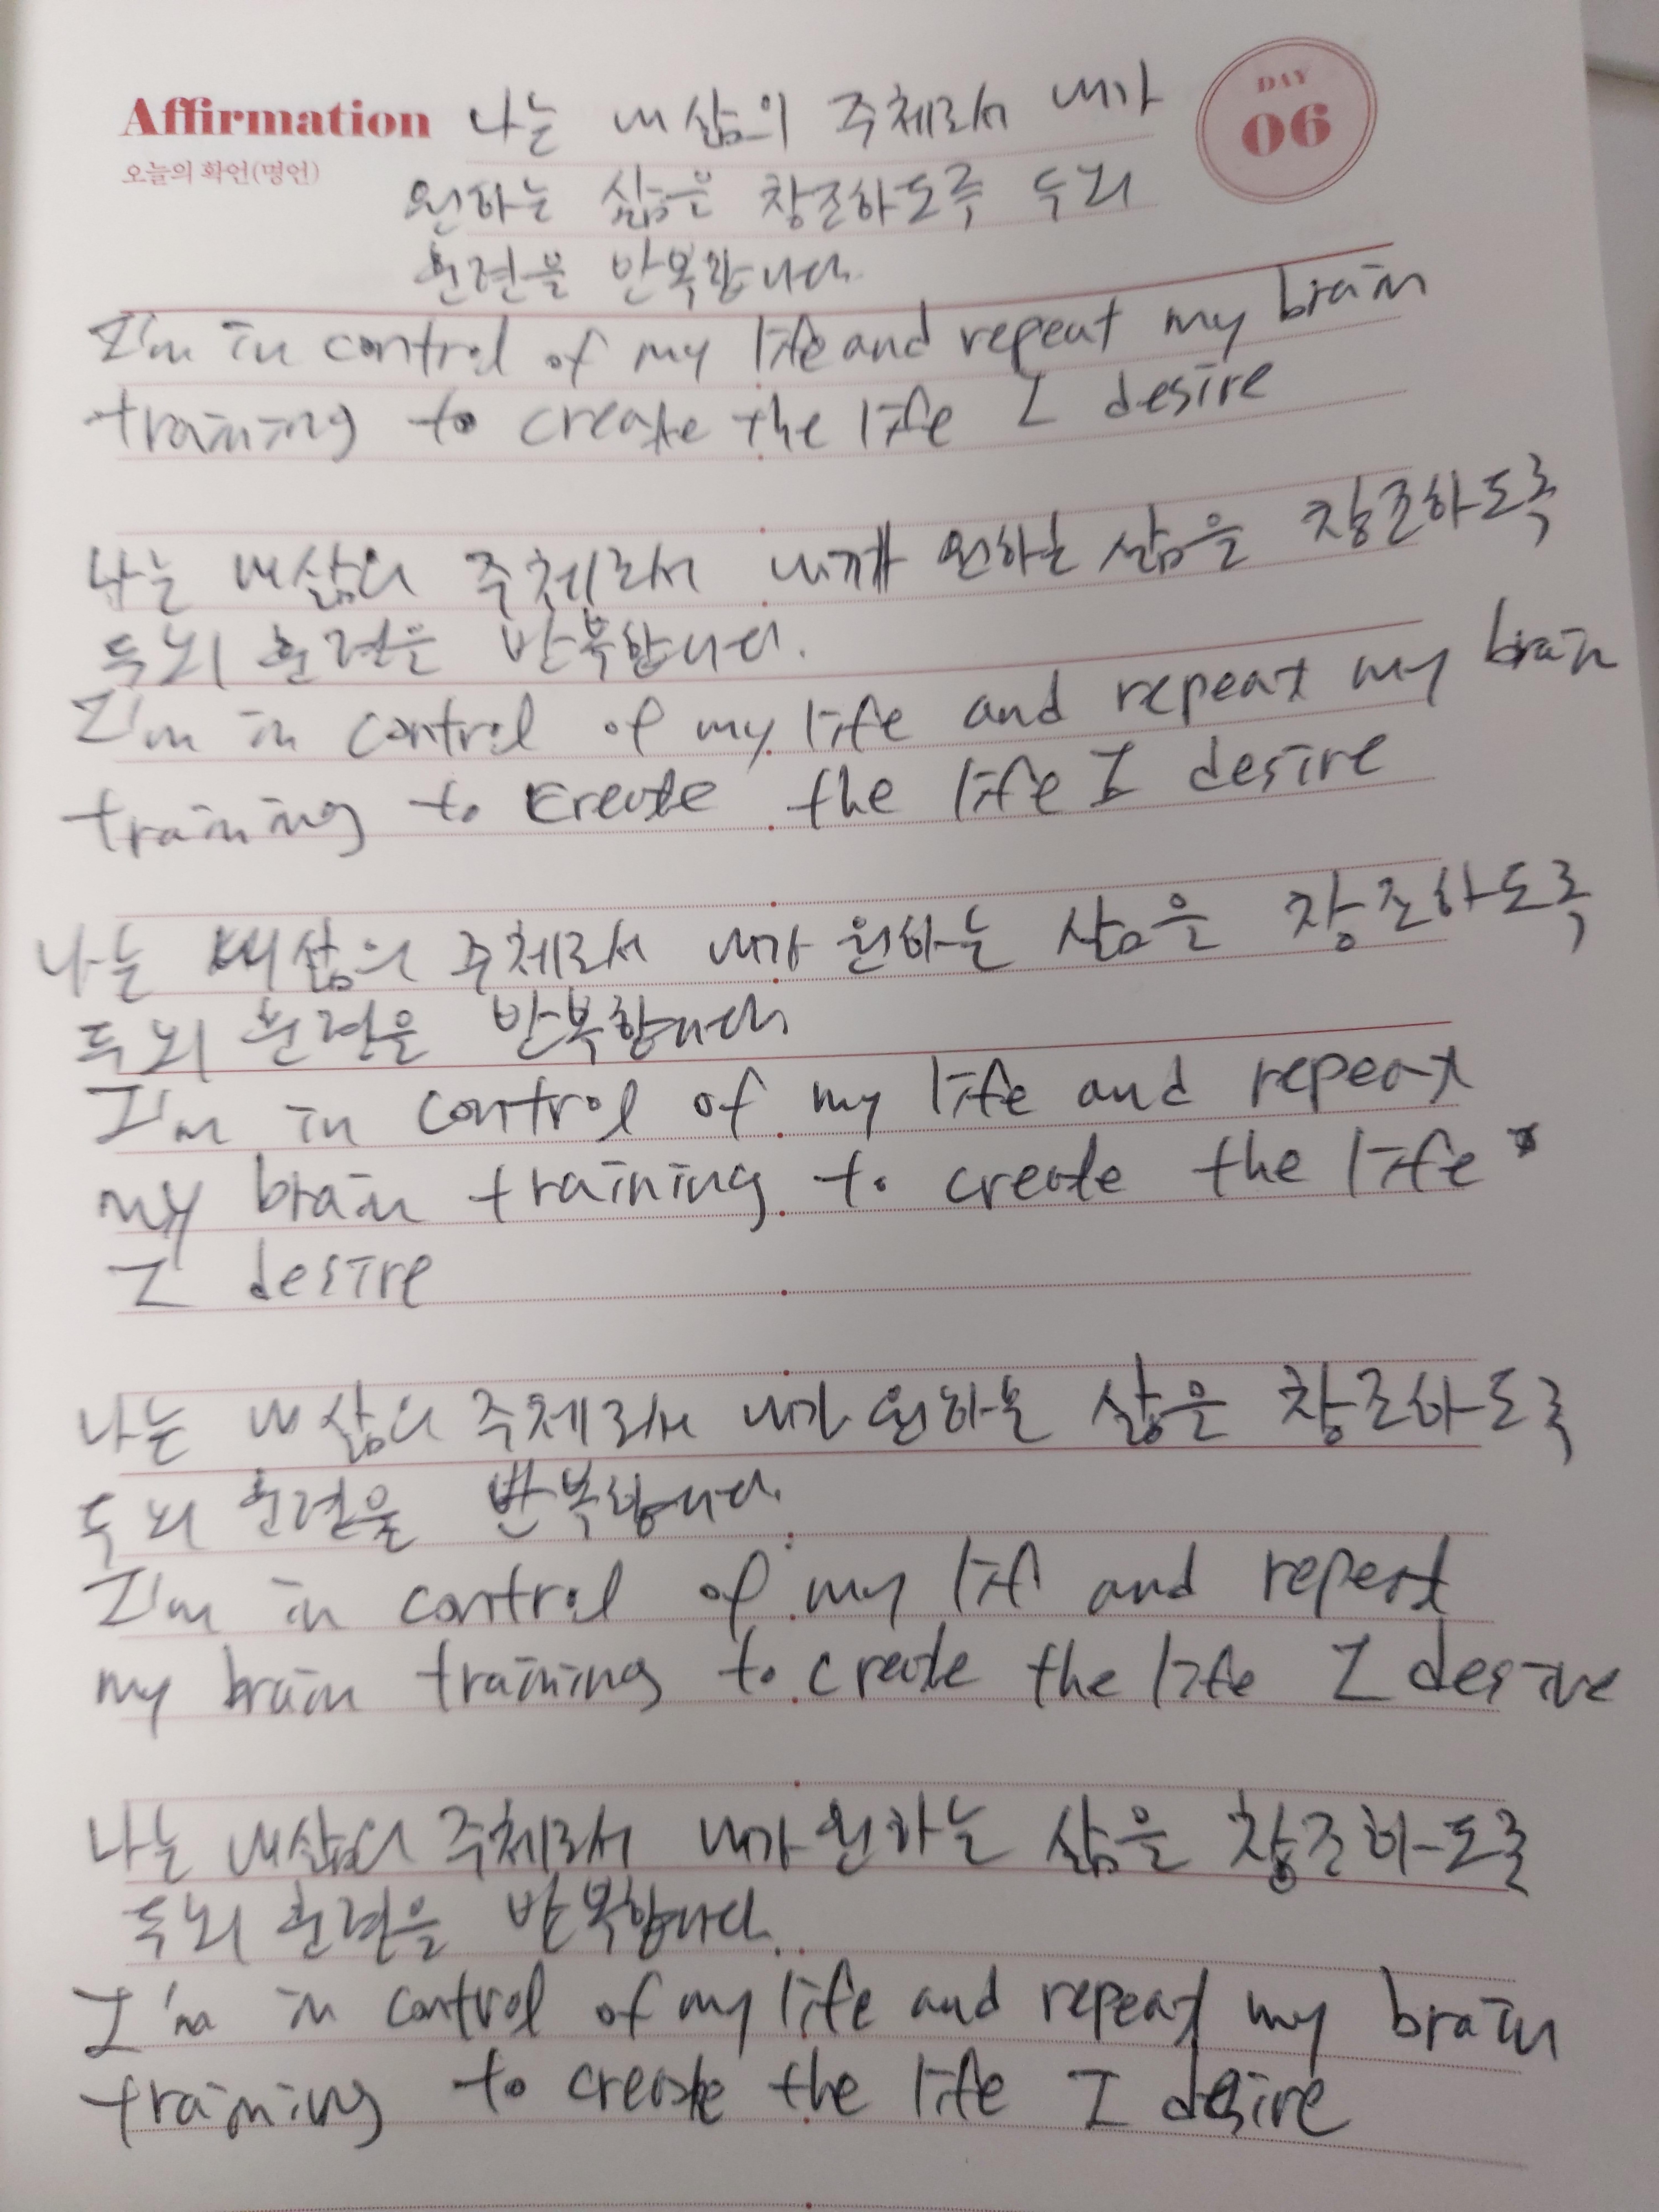 DAY
06
Affirmation 나는 내 삶의 주체로서 내가
오늘의 확언(명언)
원하는 삶은 창조하도록 두뇌
훈련을 반복합니다.
I'm in control of my life and repeat my brain
training to create the life I desire
나는 내 삶의 주체로서 내가 원하는 삶을 창조하도록
두뇌 훈련은 반복합니다.
I'm in control of my life and repeat my brain
training to create the life I desire
나는 내 삶의 주체로서 내가 원하는 삶을 창조하도록
두뇌 훈련을 반복합니다
I'm in control of my life and repeat
my brain training to create the life
I desire
나는 내 삶의 주체로서 내가 원하는 삶은 창조하도록
두뇌 훈련을 반복합니다.
I'm in control of my lif and repeat
my brain training to create the life I desire
나는 내 삶의 주체로서 내가 원하는 삶을 창조하도록
두뇌 훈련을 반복합니다.
I'm in control of my life and repeat my brain
training to create the life I desire